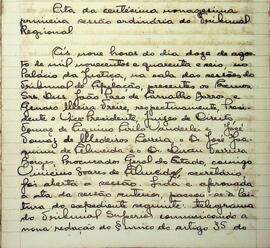 Ata da centésima nonagésima
primeira sessão ordinária do Tribunal
Regional
Ás nove horas do dia doze de agos-
to de mil novecentos e quarenta e seis, no
Palácio da Justiça, na sala das sessões do
Tribunal de Apelação, presentes os Excmos
Srs. Drs. João Ires de Carvalho
e
Genaro Freire, respectivamente, Presiden-
te e Vice Presidente, Juizes de Direito,
Tomaz de Aquino Cirilo Wanderlei e José
Tomaz de Medeiros Correia e Dr. José Joa-
quim de Almeida e Dr.
Borges, Procurador Geral do Estado, comigo
Soares de Almeida, secretário,
foi aberta a sessão. Lida e aprovada
a ata da sessão anterior, passou-se á lei-
tura do expediente seguinte: telegrama
do Tribunal Superior comunicando a
nova redação do § único do artigo 35 do